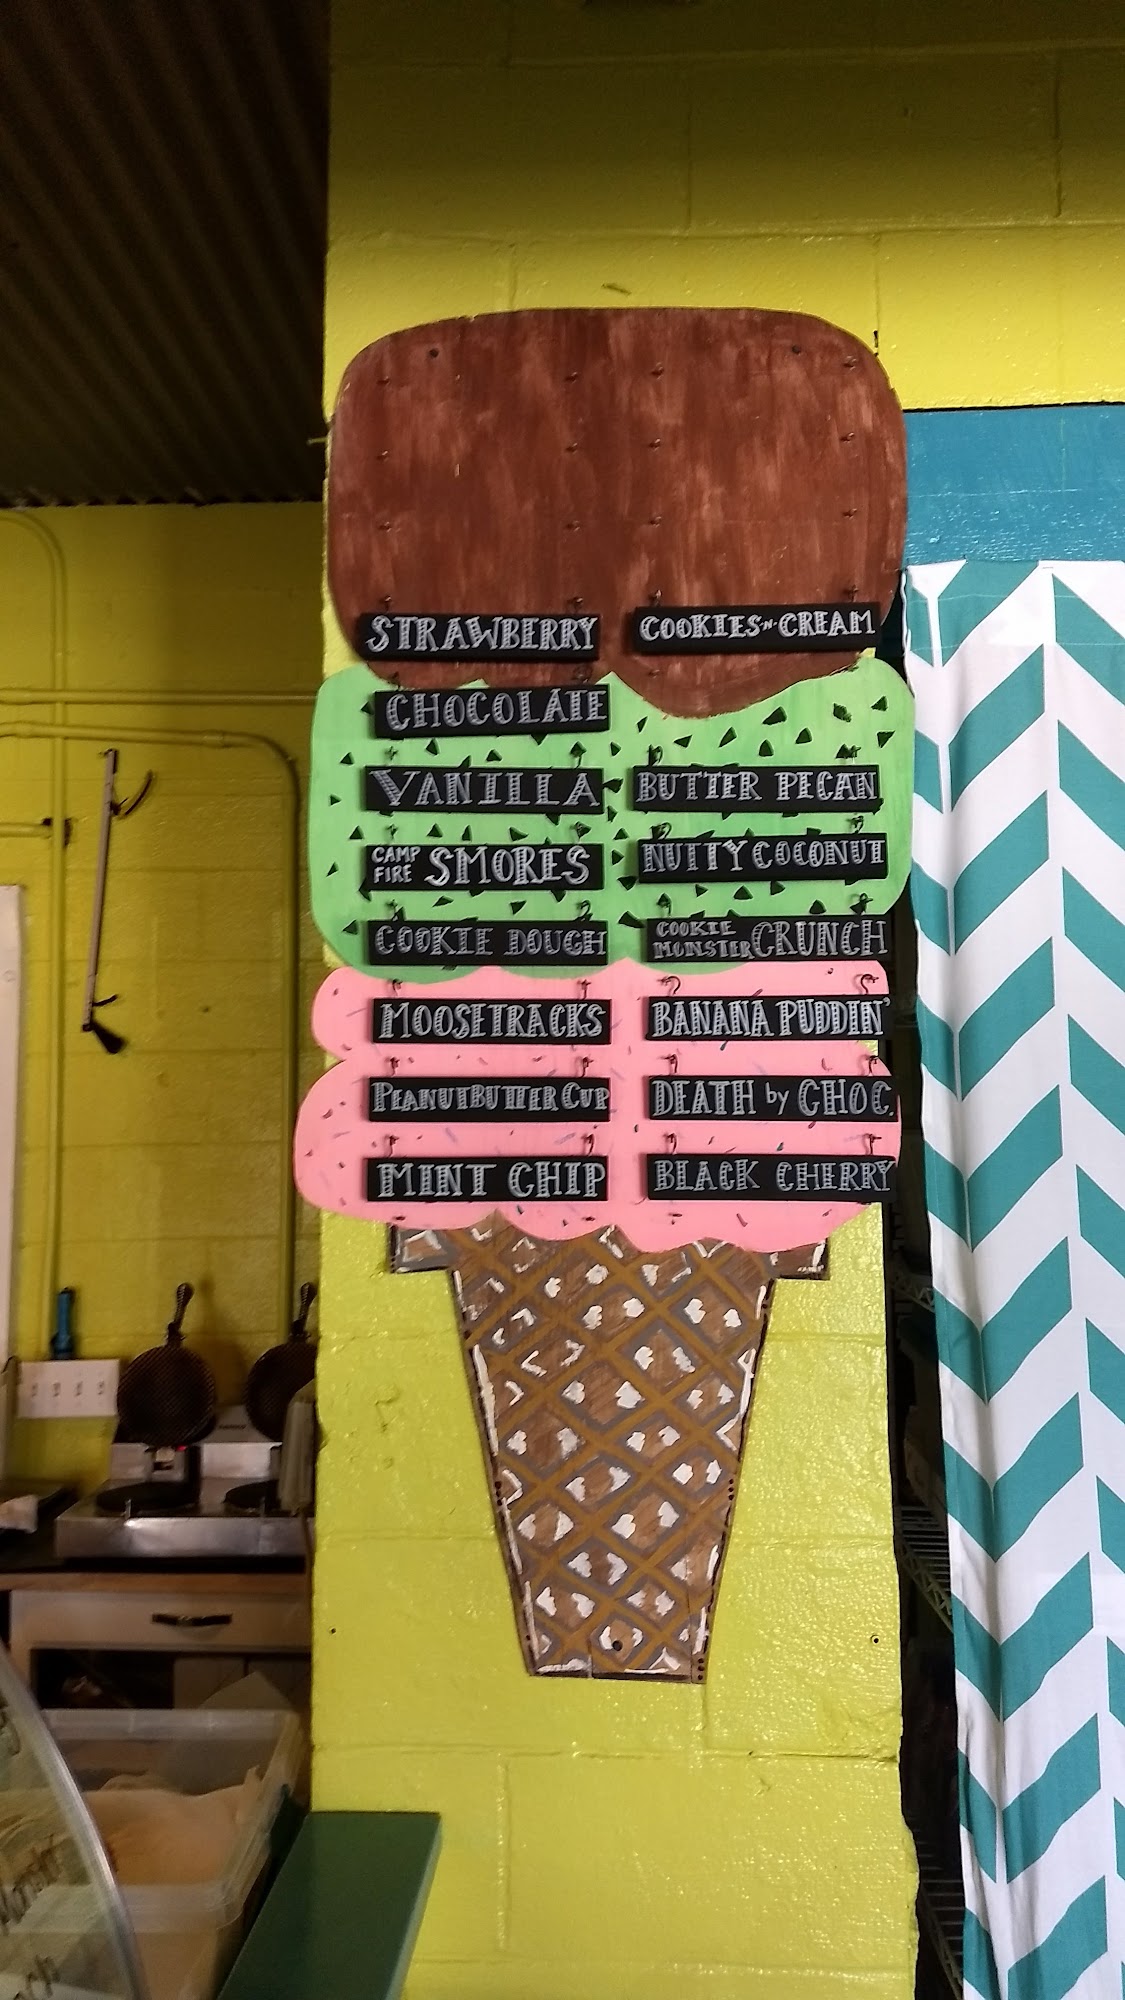 STRAWBERRY
COOKIES-N-CREAM
CHOCOLATE
VANILLA
BUTTER PECAN
CAMP FIRE SMORES
NUTTY COCONUT
COOKIE DOUGH
COOKIE MONSTER CRUNCH
MOOSETRACKS
BANANA PUDDIN'
PEANUTBUTTER CUP
DEATH by CHOC.
MINT CHIP
BLACK CHERRY